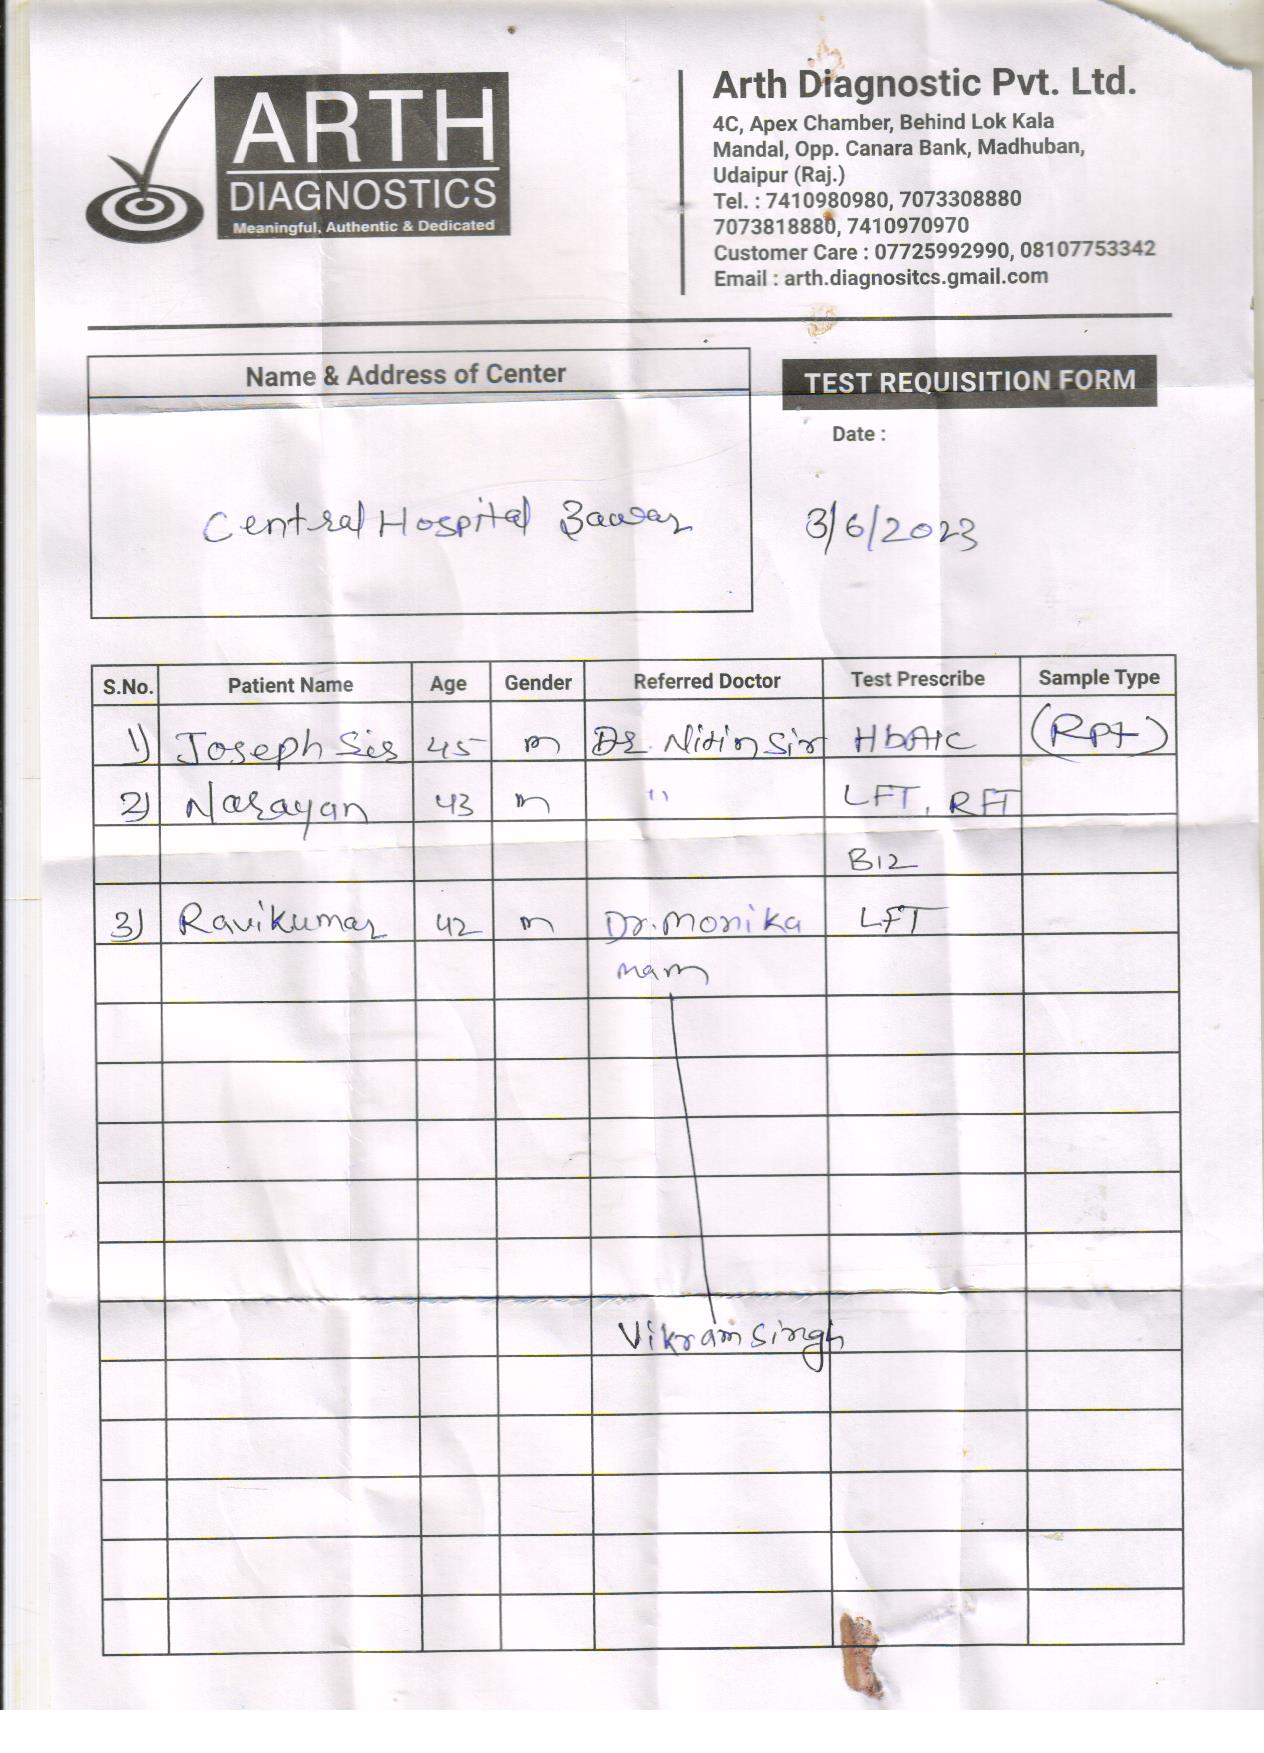 ARTH
DIAGNOSTICS
Meaningful, Authentic & Dedicated
Arth Diagnostic Pvt. Ltd.
4C, Apex Chamber, Behind Lok Kala
Mandal, Opp. Canara Bank, Madhuban,
Udaipur (Raj.)
Tel. : 7410980980, 7073308880
7073818880, 7410970970
Customer Care : 07725992990, 08107753342
Email : arth.diagnositcs.gmail.com
Name & Address of Center
Central Hospital Zawar
TEST REQUISITION FORM
Date :
3/6/2023
S.No. Patient Name Age Gender Referred Doctor Test Prescribe Sample Type
1) Joseph Sis 45 m Dr. Nitin Sir HbA1C (Rpt)
2) Narayan 43 m " LFT, RFT
B12
3) Ravikumar 42 m Dr. Monika LFT
mam
Vikram Singh